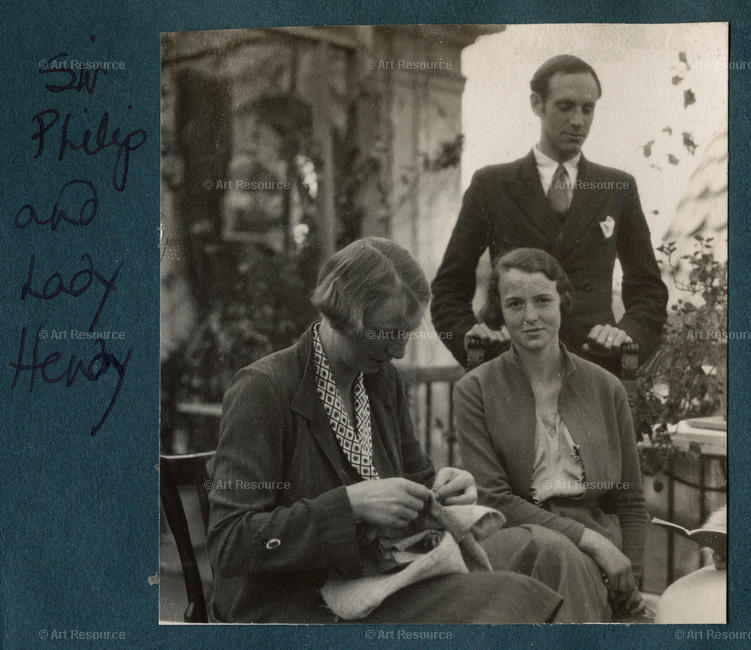 Sir
Philip
and
Lady
Hendy
© Art Resource © Art Resource © Art Resource
© Art Resource © Art Resource
© Art Resource © Art Resource © Art Resource
© Art Resource © Art Resource
© Art Resource © Art Resource © Art Resource